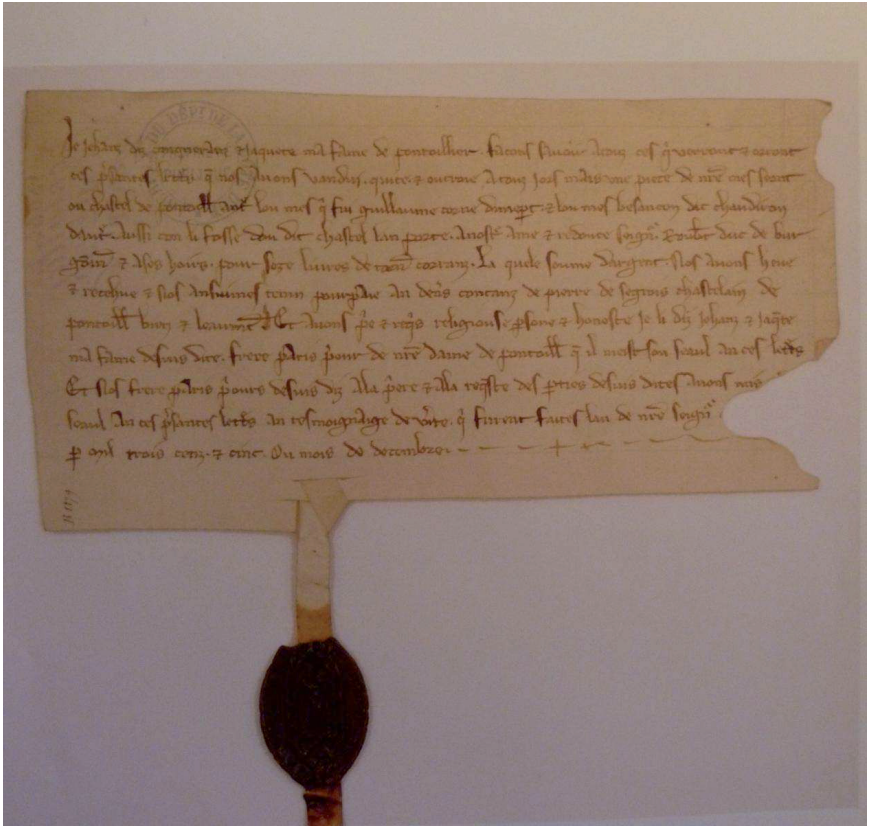 Je Jehanz diz & Jaquete ma fame de pontoillier. facons savoir a touz ces q̄ verront & orront
ces p̄santes lett̄s q̄ nos avons vandu. quite. & outroie a touz jors mais une piece de nr̄e mes seant
ou chastel de pontoill̄ ant̄ lou mes q̄ fu guillaume & lou mes besancon dit chauderon
dautr̄. aussi con li fosse dou dit chastel lan porte. A nost̄ ame & redoute seign̄. Roub̄t duc de bur
goin̄ & a ses hoirs. pour seze livres de torn̄ coranz. La quele some dargent. Nos avons heue
& recehue & Nos an tenu pour paie an den̄s contanz de pierre de segrois chastelain de
pontoill̄ bien & leaumt̄. Et avons p̄e & req̄s religiouse p̄sone & honeste Je li diz Jehanz & Jaq̄te
ma fame desus dite. frere p̄our de nr̄e dame de pontoill̄ q̄ il meist son seaul an ces lett̄s
Et Nos frere p̄ours desus diz a la p̄ere & a la req̄ste des p̄ties desus dites avons mis
seaul an ces p̄santes lett̄s an tesmoignaige de v̄ite. q̄ furent faites lan de nr̄e seign̄.
p̄ mil trois cenz. & cinc. Ou mois de decembre.